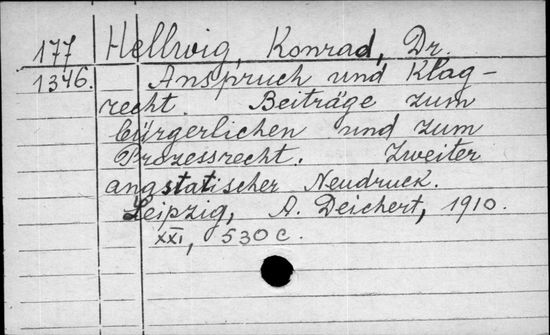 177 Hellwig, Konrad, Dr.
1346. Anspruch und Klag-
recht. Beiträge zum
bürgerlichen und zum
Prozessrecht. Zweiter
angstatischer Neudruck.
Leipzig, A. Deichert, 1910.
XXI, 530 c.